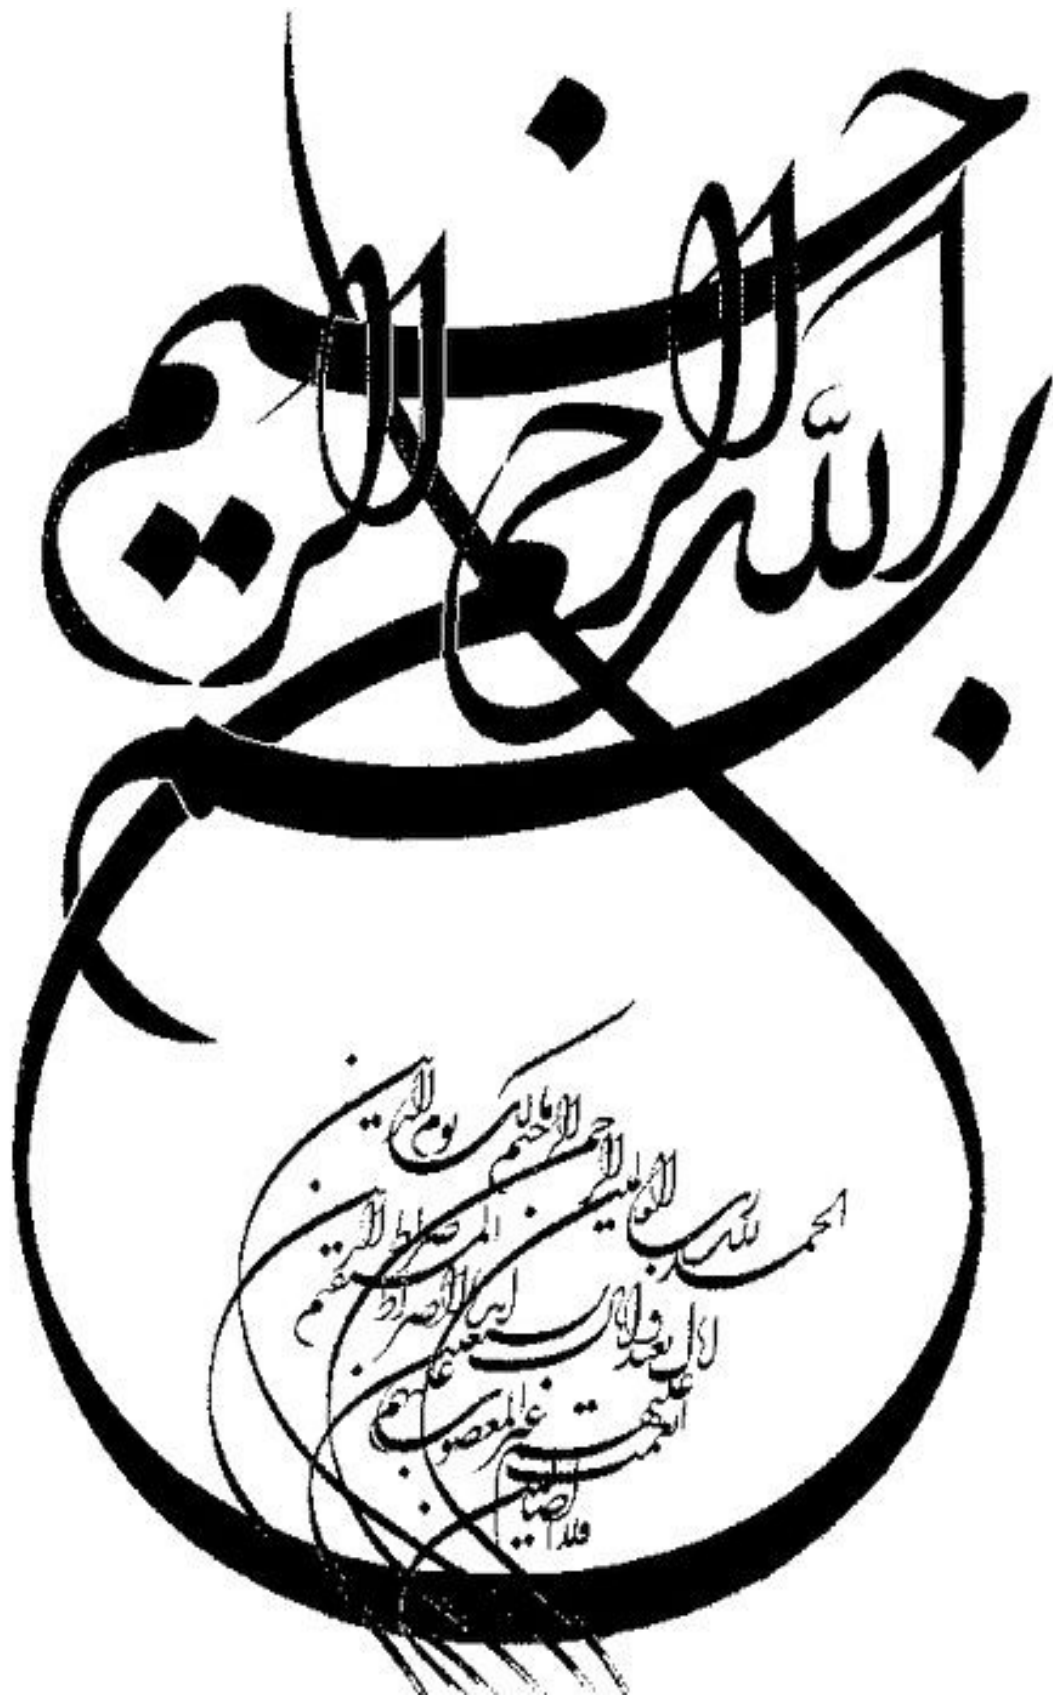 بسم الله الرحمن الرحيم
الحمد لله رب العالمين
الرحمن الرحيم
مالك يوم الدين
نعبد واياك نستعين
اهدنا الصراط المستقيم
صراط الذين
انعمت عليهم
غير المغضوب عليهم
ولا الضالين